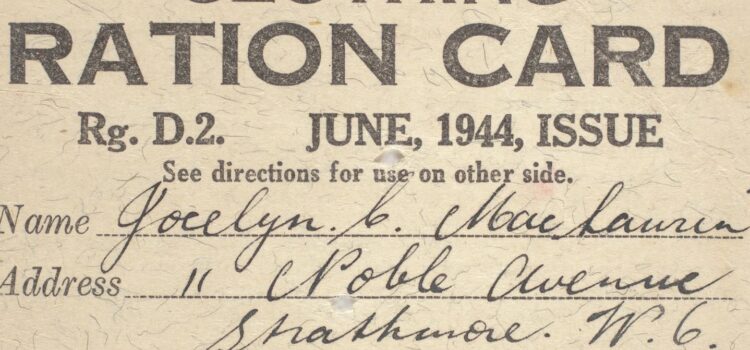 CLOTHING
RATION CARD
Rg. D.2. JUNE, 1944, ISSUE
See directions for use on other side.
Name Jocelyn. C. MacLaurin
Address 11 Noble Avenue
Strathmore. W. 6.